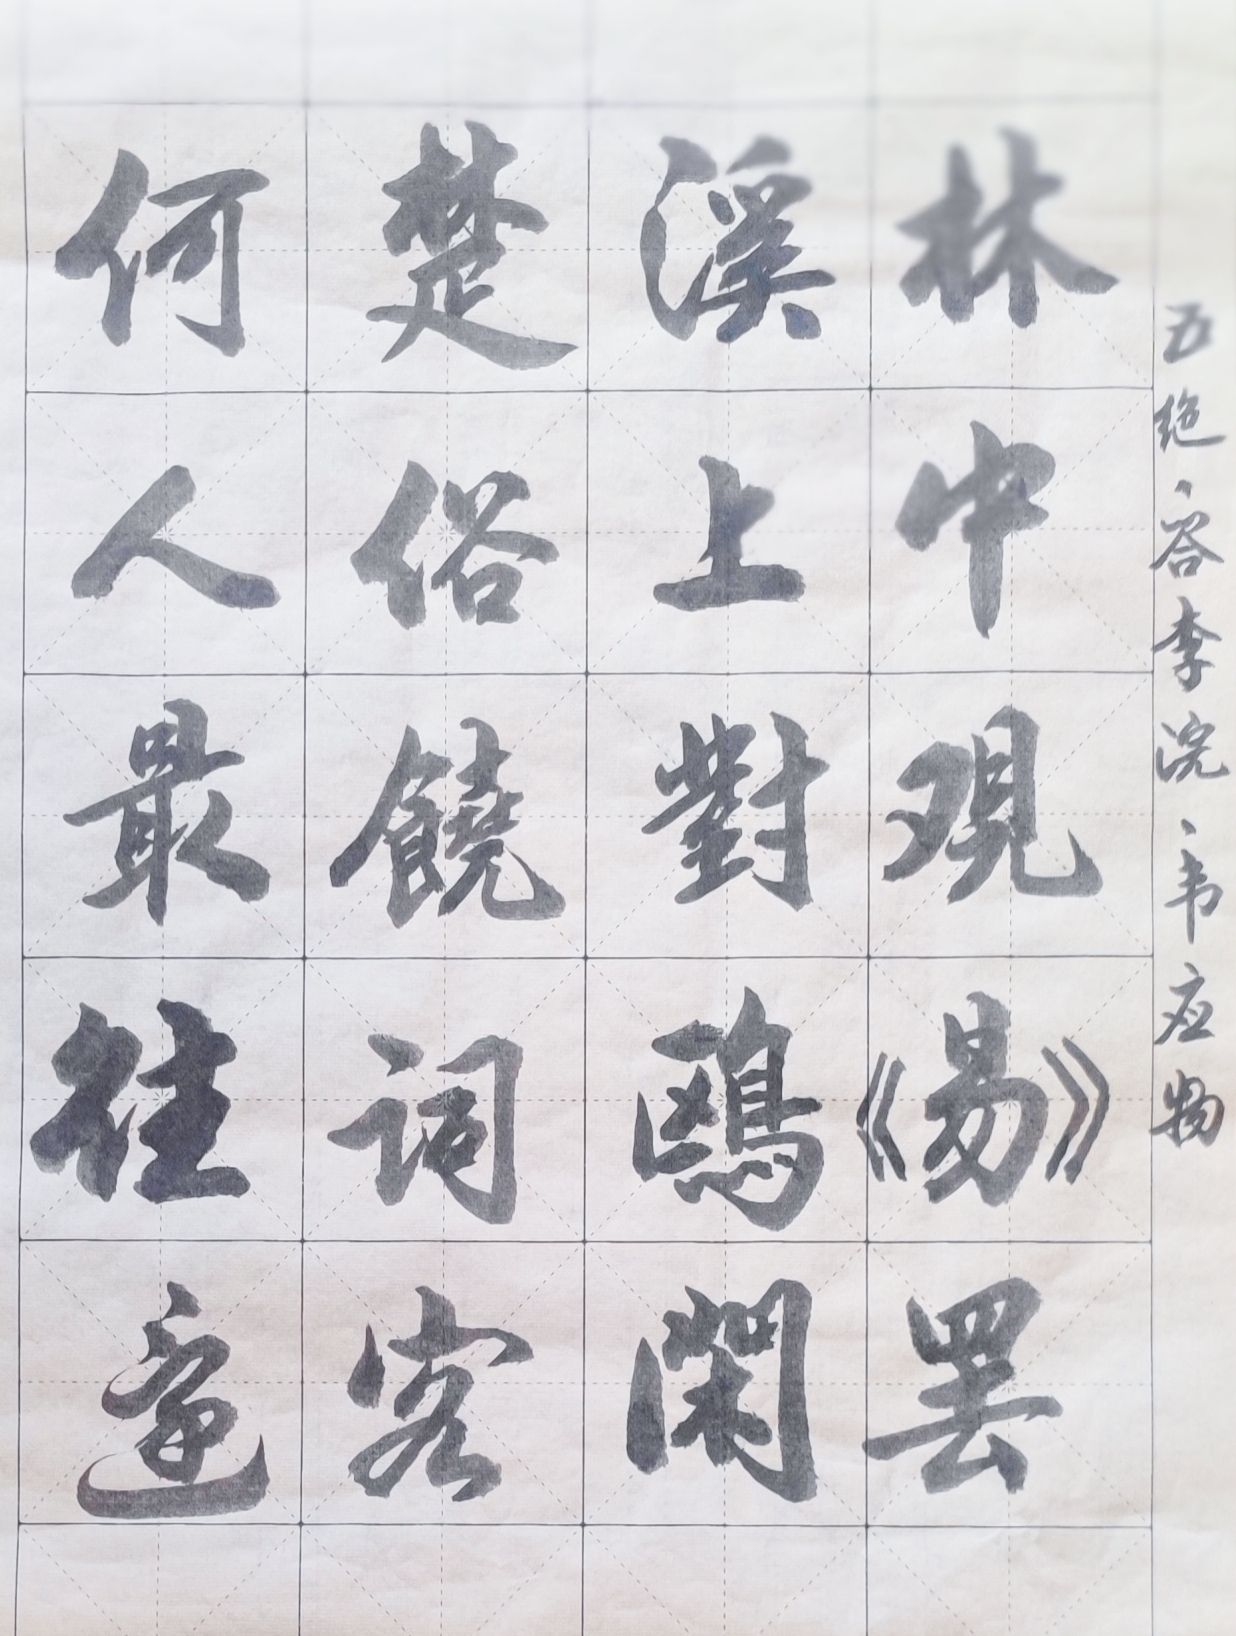 五绝·答李浣·韦应物
林中观《易》罢
溪上對鷗閑
楚俗饒词客
何人最往還